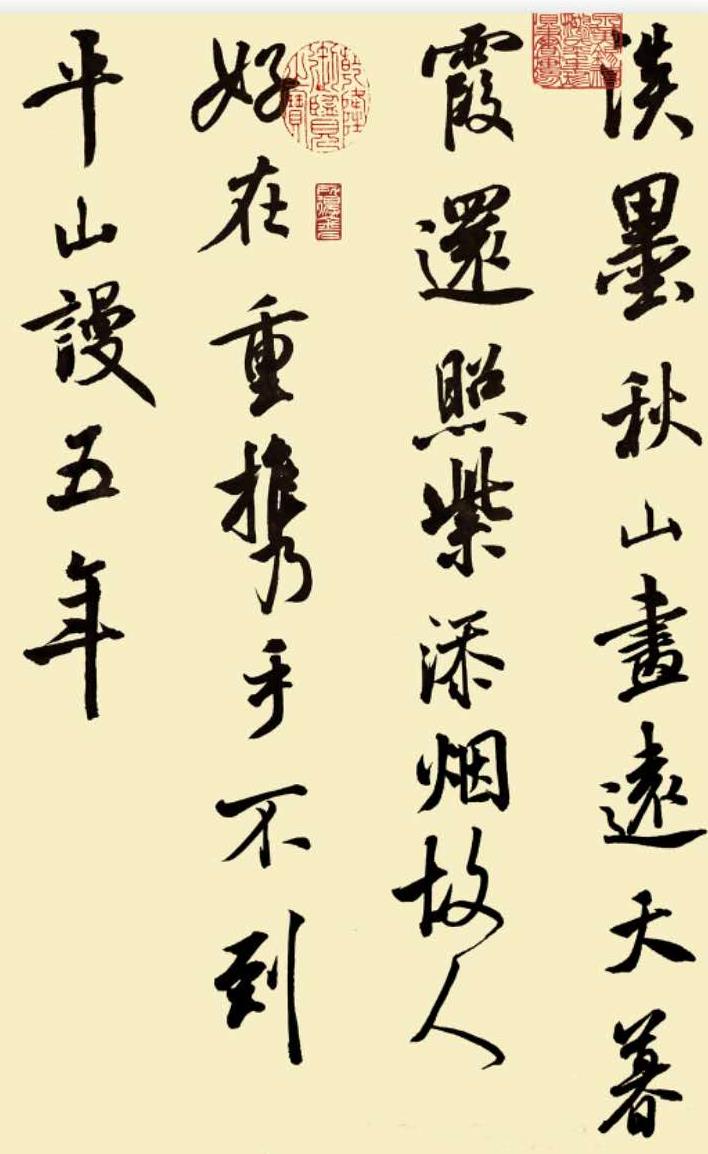 淡墨秋山畫遠天暮
霞還照紫添烟故人
好在重携手不到
平山謾五年